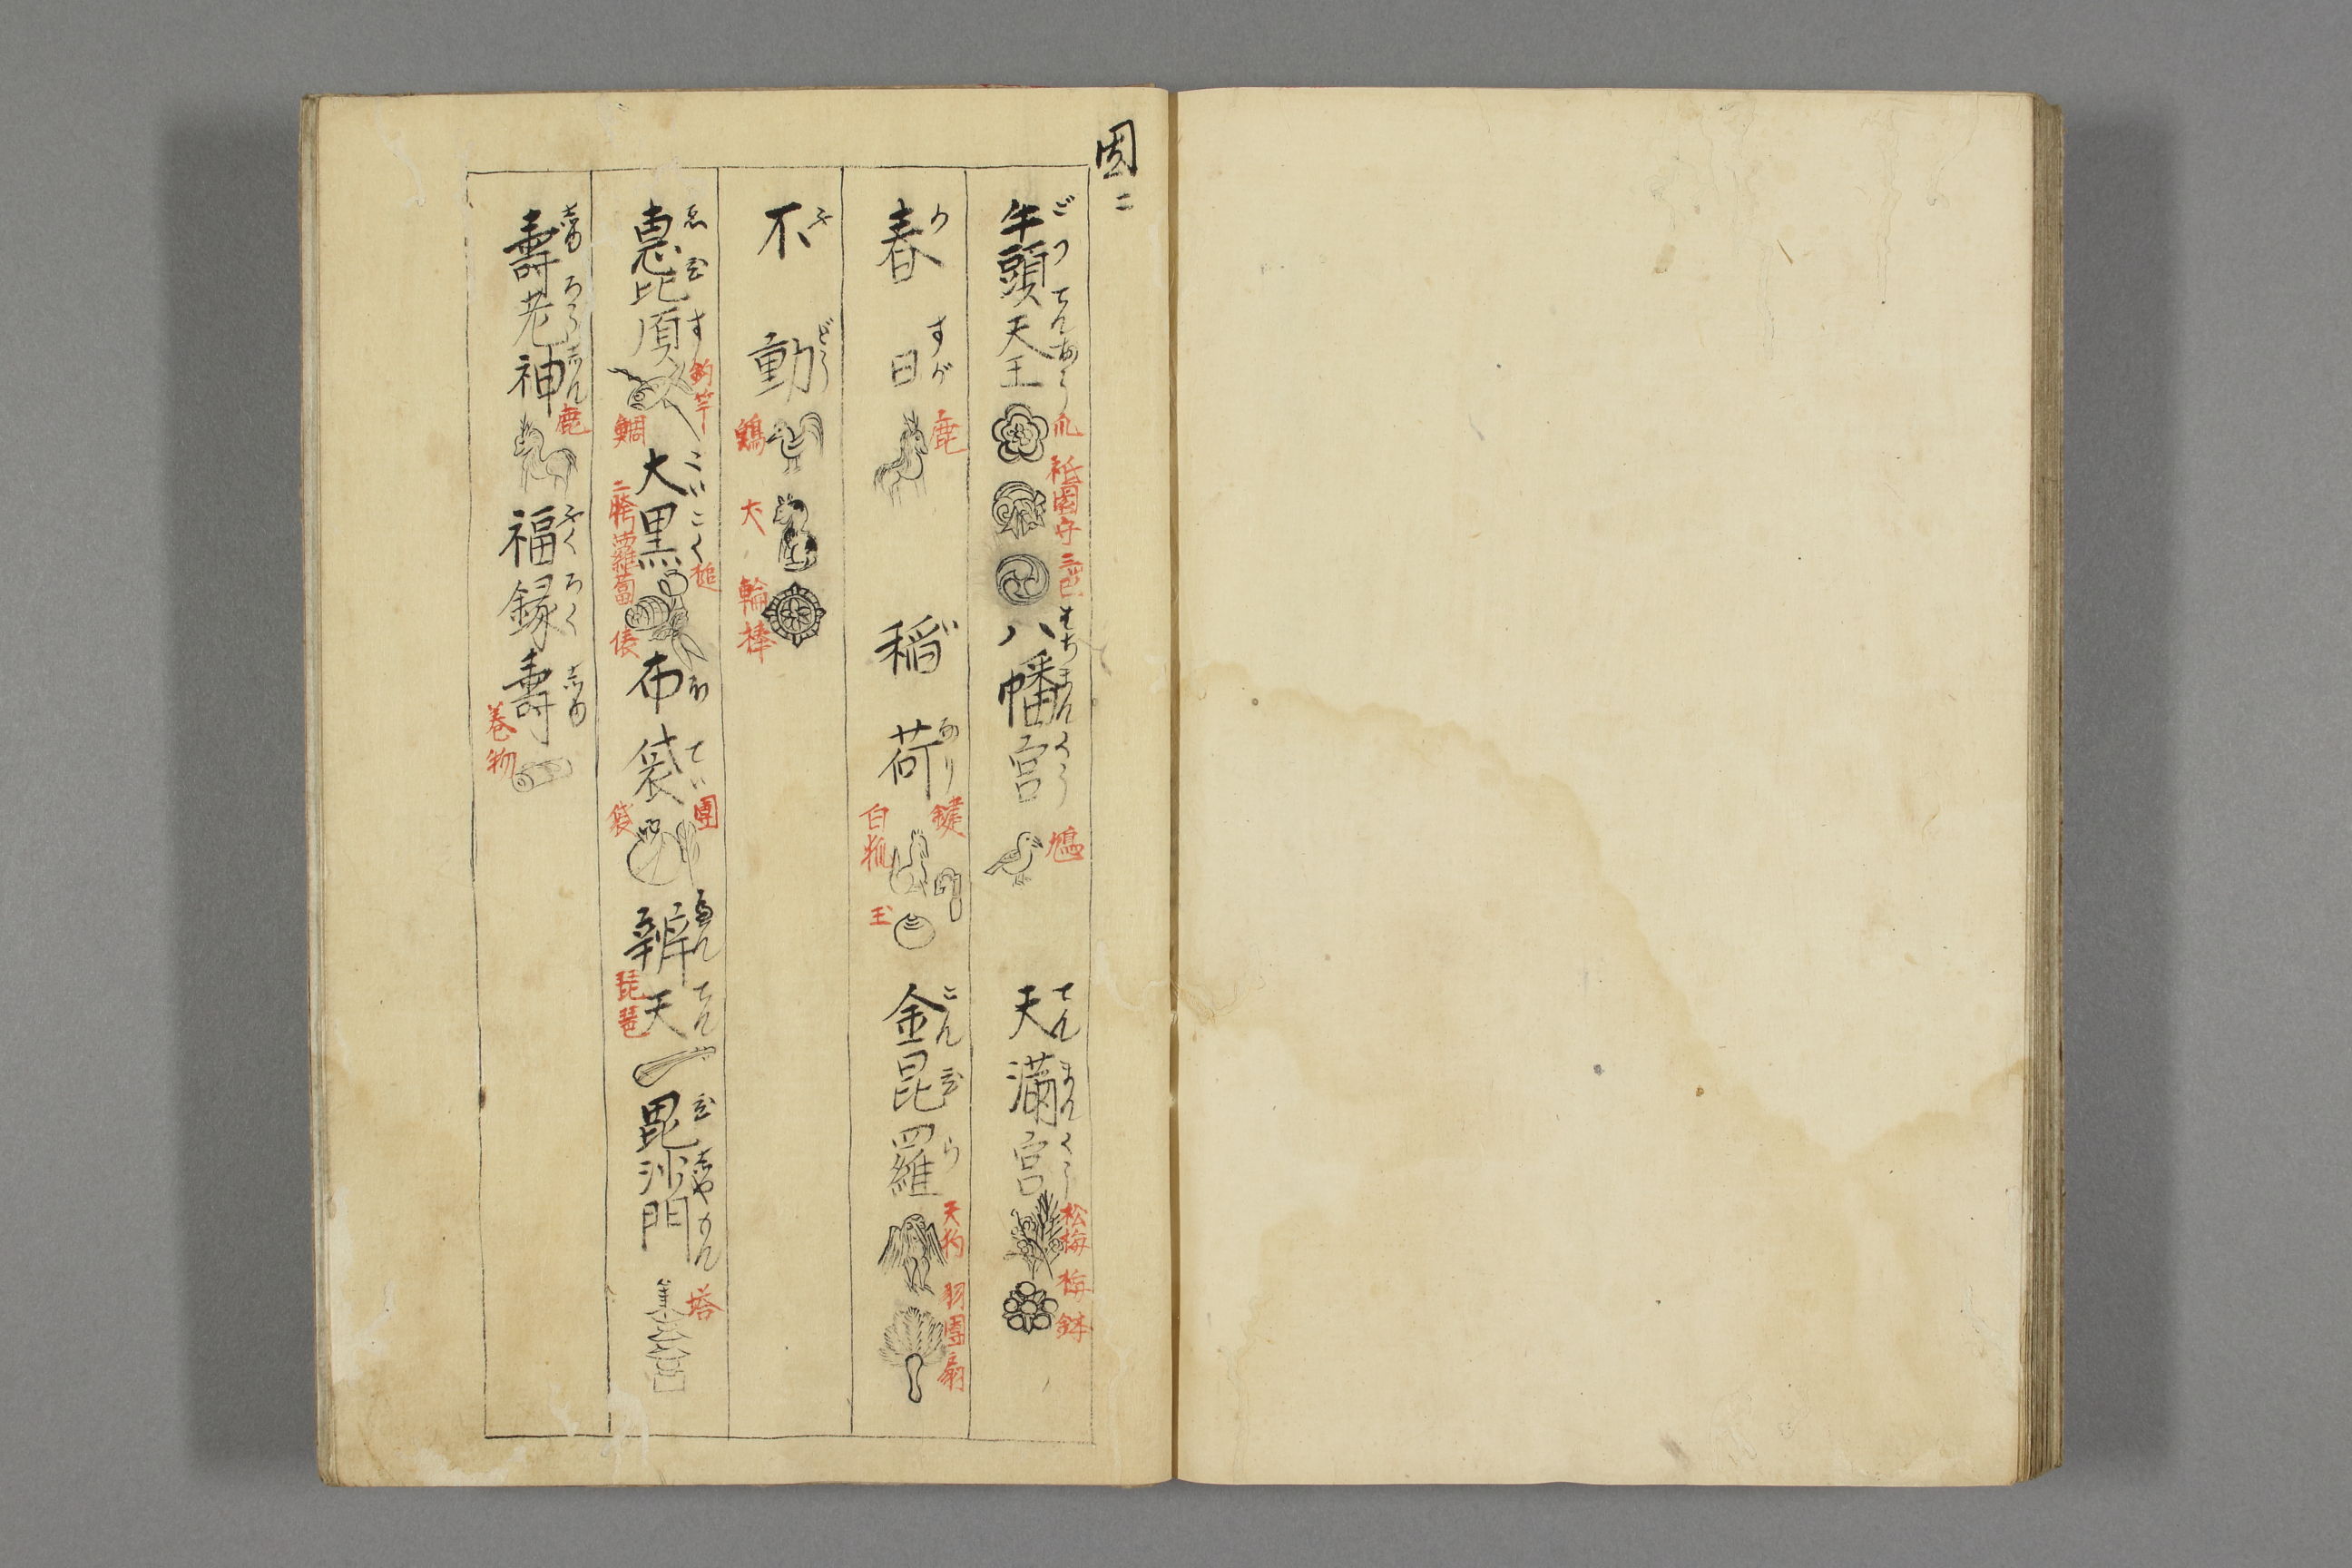 図二
牛頭天王 ごづてんわう 爪 祇園守 三ツ巴 八幡宮 はちまんぐう 鳩 天満宮 てんまんぐう 松梅 梅鉢
春日 かすが 鹿 稲荷 いなり 鍵 白狐 玉 金毘羅 こんぴら 天狗 羽團扇
不動 ふどう 鶏 犬 輪棒
恵比須 ゑびす 釣竿 鯛 大黒 だいこく 槌 二股羅蔔 俵 布袋 ほてい 團 袋 辨天 べんてん 琵琶 毘沙門 びしやもん 塔
壽老神 じゆろうじん 鹿 福録壽 ふくろくじゆ 巻物